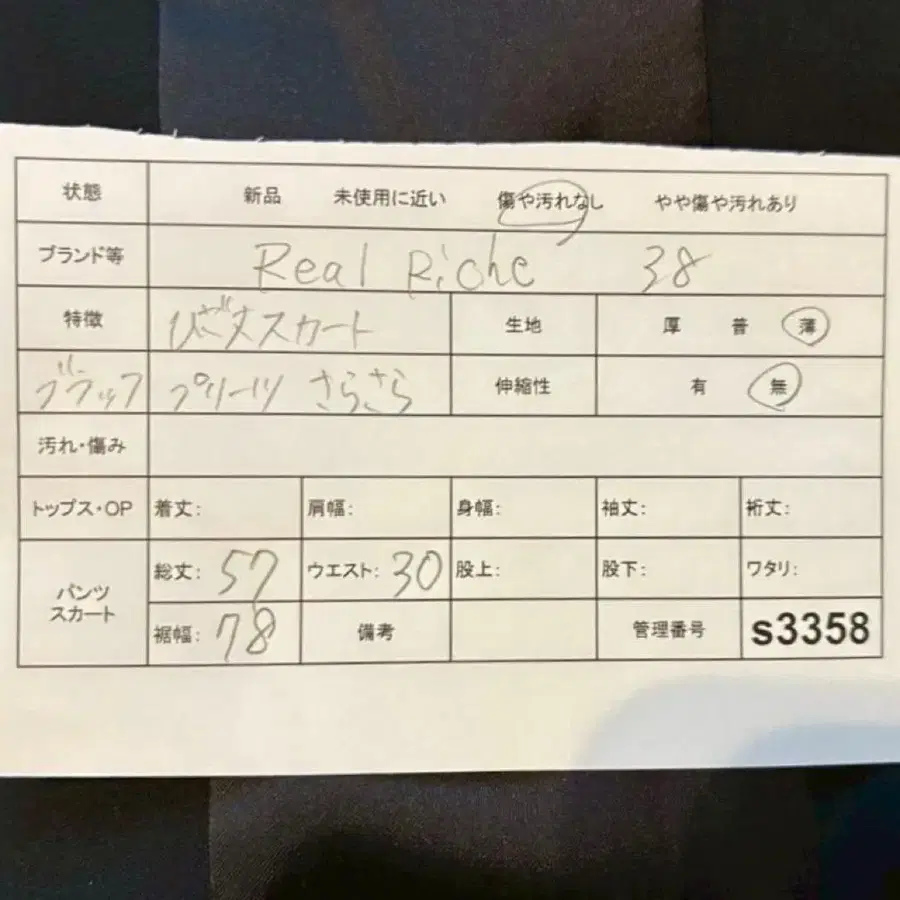 状態 新品 未使用に近い 傷や汚れなし やや傷や汚れあり
ブランド等 Real Riche 38
特徴 ひざ丈スカート 生地 厚 普 薄
ブラック プリーツ さらさら 伸縮性 有 無
汚れ・傷み
トップス・OP 着丈: 肩幅: 身幅: 袖丈: 裄丈:
パンツ スカート 総丈: 57 ウエスト: 30 股上: 股下: ワタリ:
裾幅: 78 備考 管理番号 s3358